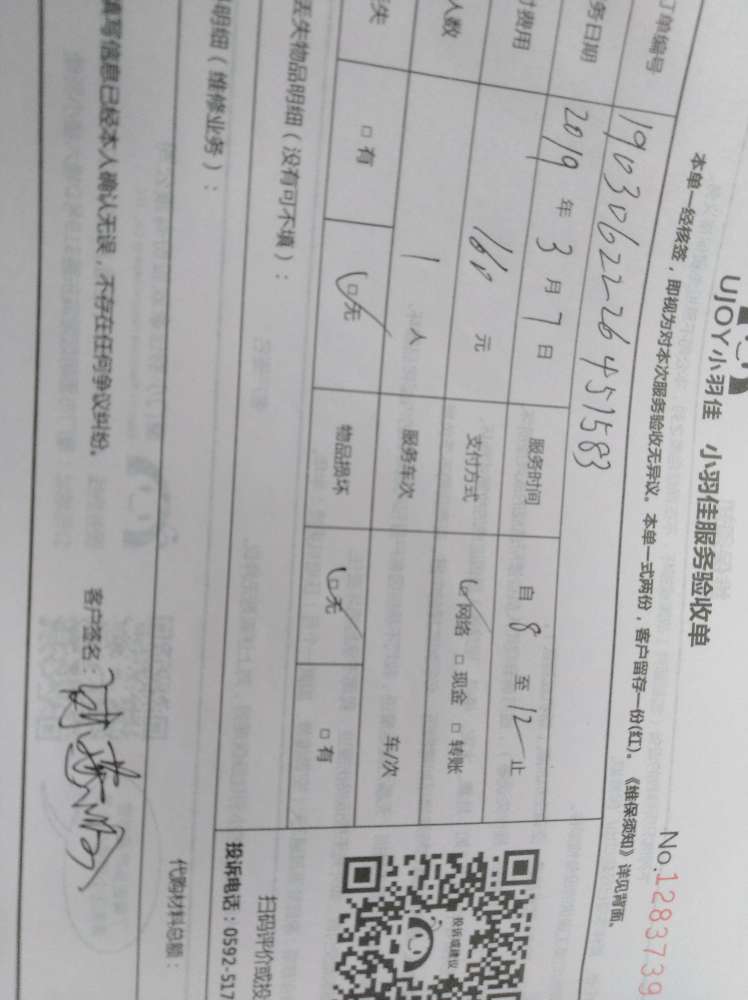 UJOY小羽佳 小羽佳服务验收单
No.1283739
本单一经核签，即视为对本次服务验收无异议。本单一式两份，客户留存一份(红)。《维保须知》详见背面。
订单编号 1903062226451583
务日期 2019 年 3 月 7 日 服务时间 自 8 至 12 止
付费用 160 元 支付方式 ☑网络 □现金 □转账
人数 1 人 服务车次 车/次
失 □有 ☑无 物品损坏 ☑无 □有
丢失物品明细（没有可不填）：
明细（维修业务）：
投诉或建议
扫码评价或投
投诉电话：0592-517
代购材料总额：
填写信息已经本人确认无误，不存在任何争议纠纷。 客户签名：